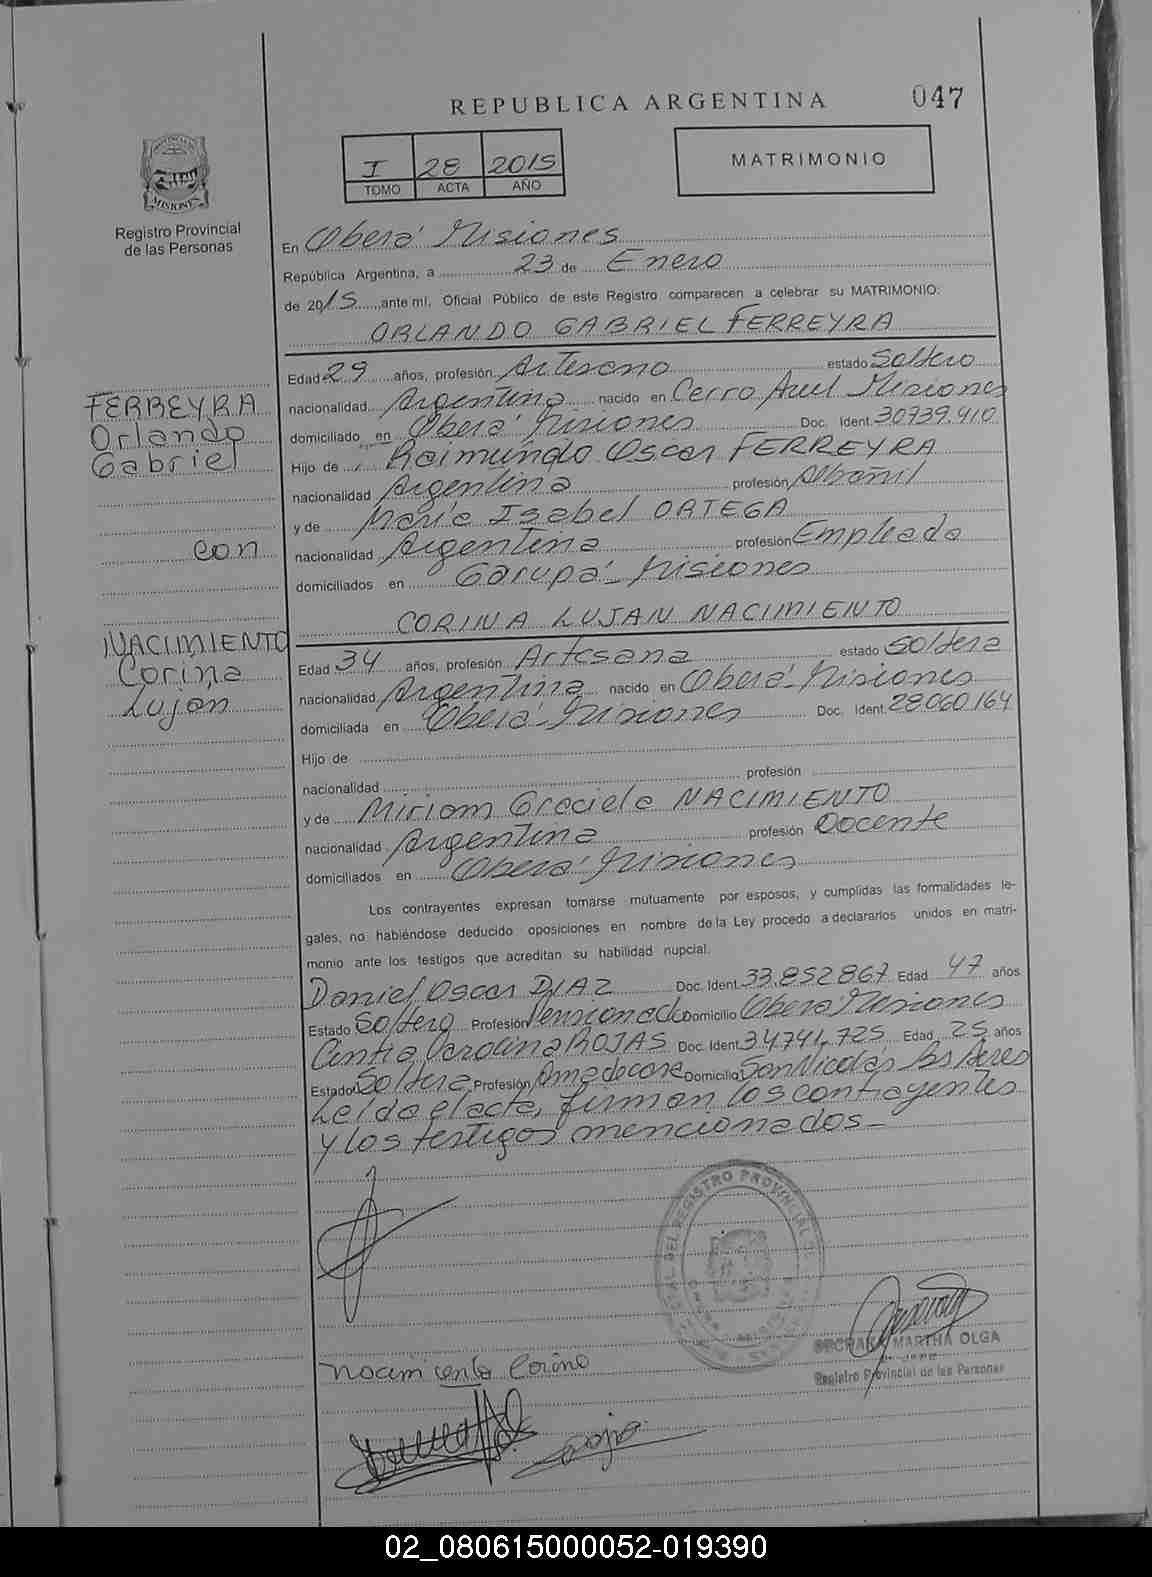 REPUBLICA ARGENTINA
047
I 28 2015
TOMO ACTA AÑO
MATRIMONIO
PROVINCIA DE
MISIONES
Registro Provincial
de las Personas
En Oberá Misiones
República Argentina, a 23 de Enero
de 2015, ante mí, Oficial Público de este Registro comparecen a celebrar su MATRIMONIO:
ORLANDO GABRIEL FERREYRA
Edad 29 años, profesión Artesano estado Soltero
nacionalidad Argentina nacido en Cerro Azul Misiones
domiciliado en Oberá Misiones Doc. Ident. 30739.410
Hijo de Raimundo Oscar FERREYRA
nacionalidad Argentina profesión Albañil
y de María Isabel ORTEGA
nacionalidad Argentina profesión Empleada
domiciliados en Garupá - Misiones
FERREYRA
Orlando
Gabriel
con
NACIMIENTO
Corina
Luján
CORINA LUJAN NACIMIENTO
Edad 34 años, profesión Artesana estado Soltera
nacionalidad Argentina nacido en Oberá - Misiones
domiciliada en Oberá - Misiones Doc. Ident. 28.060.164
Hijo de
nacionalidad profesión
y de Miriam Graciela NACIMIENTO
nacionalidad Argentina profesión Docente
domiciliados en Oberá Misiones
Los contrayentes expresan tomarse mutuamente por esposos, y cumplidas las formalidades le-
gales, no habiéndose deducido oposiciones en nombre de la Ley procedo a declararlos unidos en matri-
monio ante los testigos que acreditan su habilidad nupcial.
Daniel Oscar DIAZ Doc. Ident. 33.852867 Edad 47 años
Estado Soltero Profesión Pensionado Domicilio Oberá Misiones
Cintia Carolina ROJAS Doc. Ident. 34741.725 Edad 25 años
Estado Soltera Profesión Ama de casa Domicilio San Nicolás Bs Aires
Leída el acta, firman los contrayentes
y los testigos mencionados -
DEL REGISTRO PROVINCIAL
Nacimiento Corina
MARTHA OLGA
JEFE
Registro Provincial de las Personas
Rojas
02_080615000052-019390